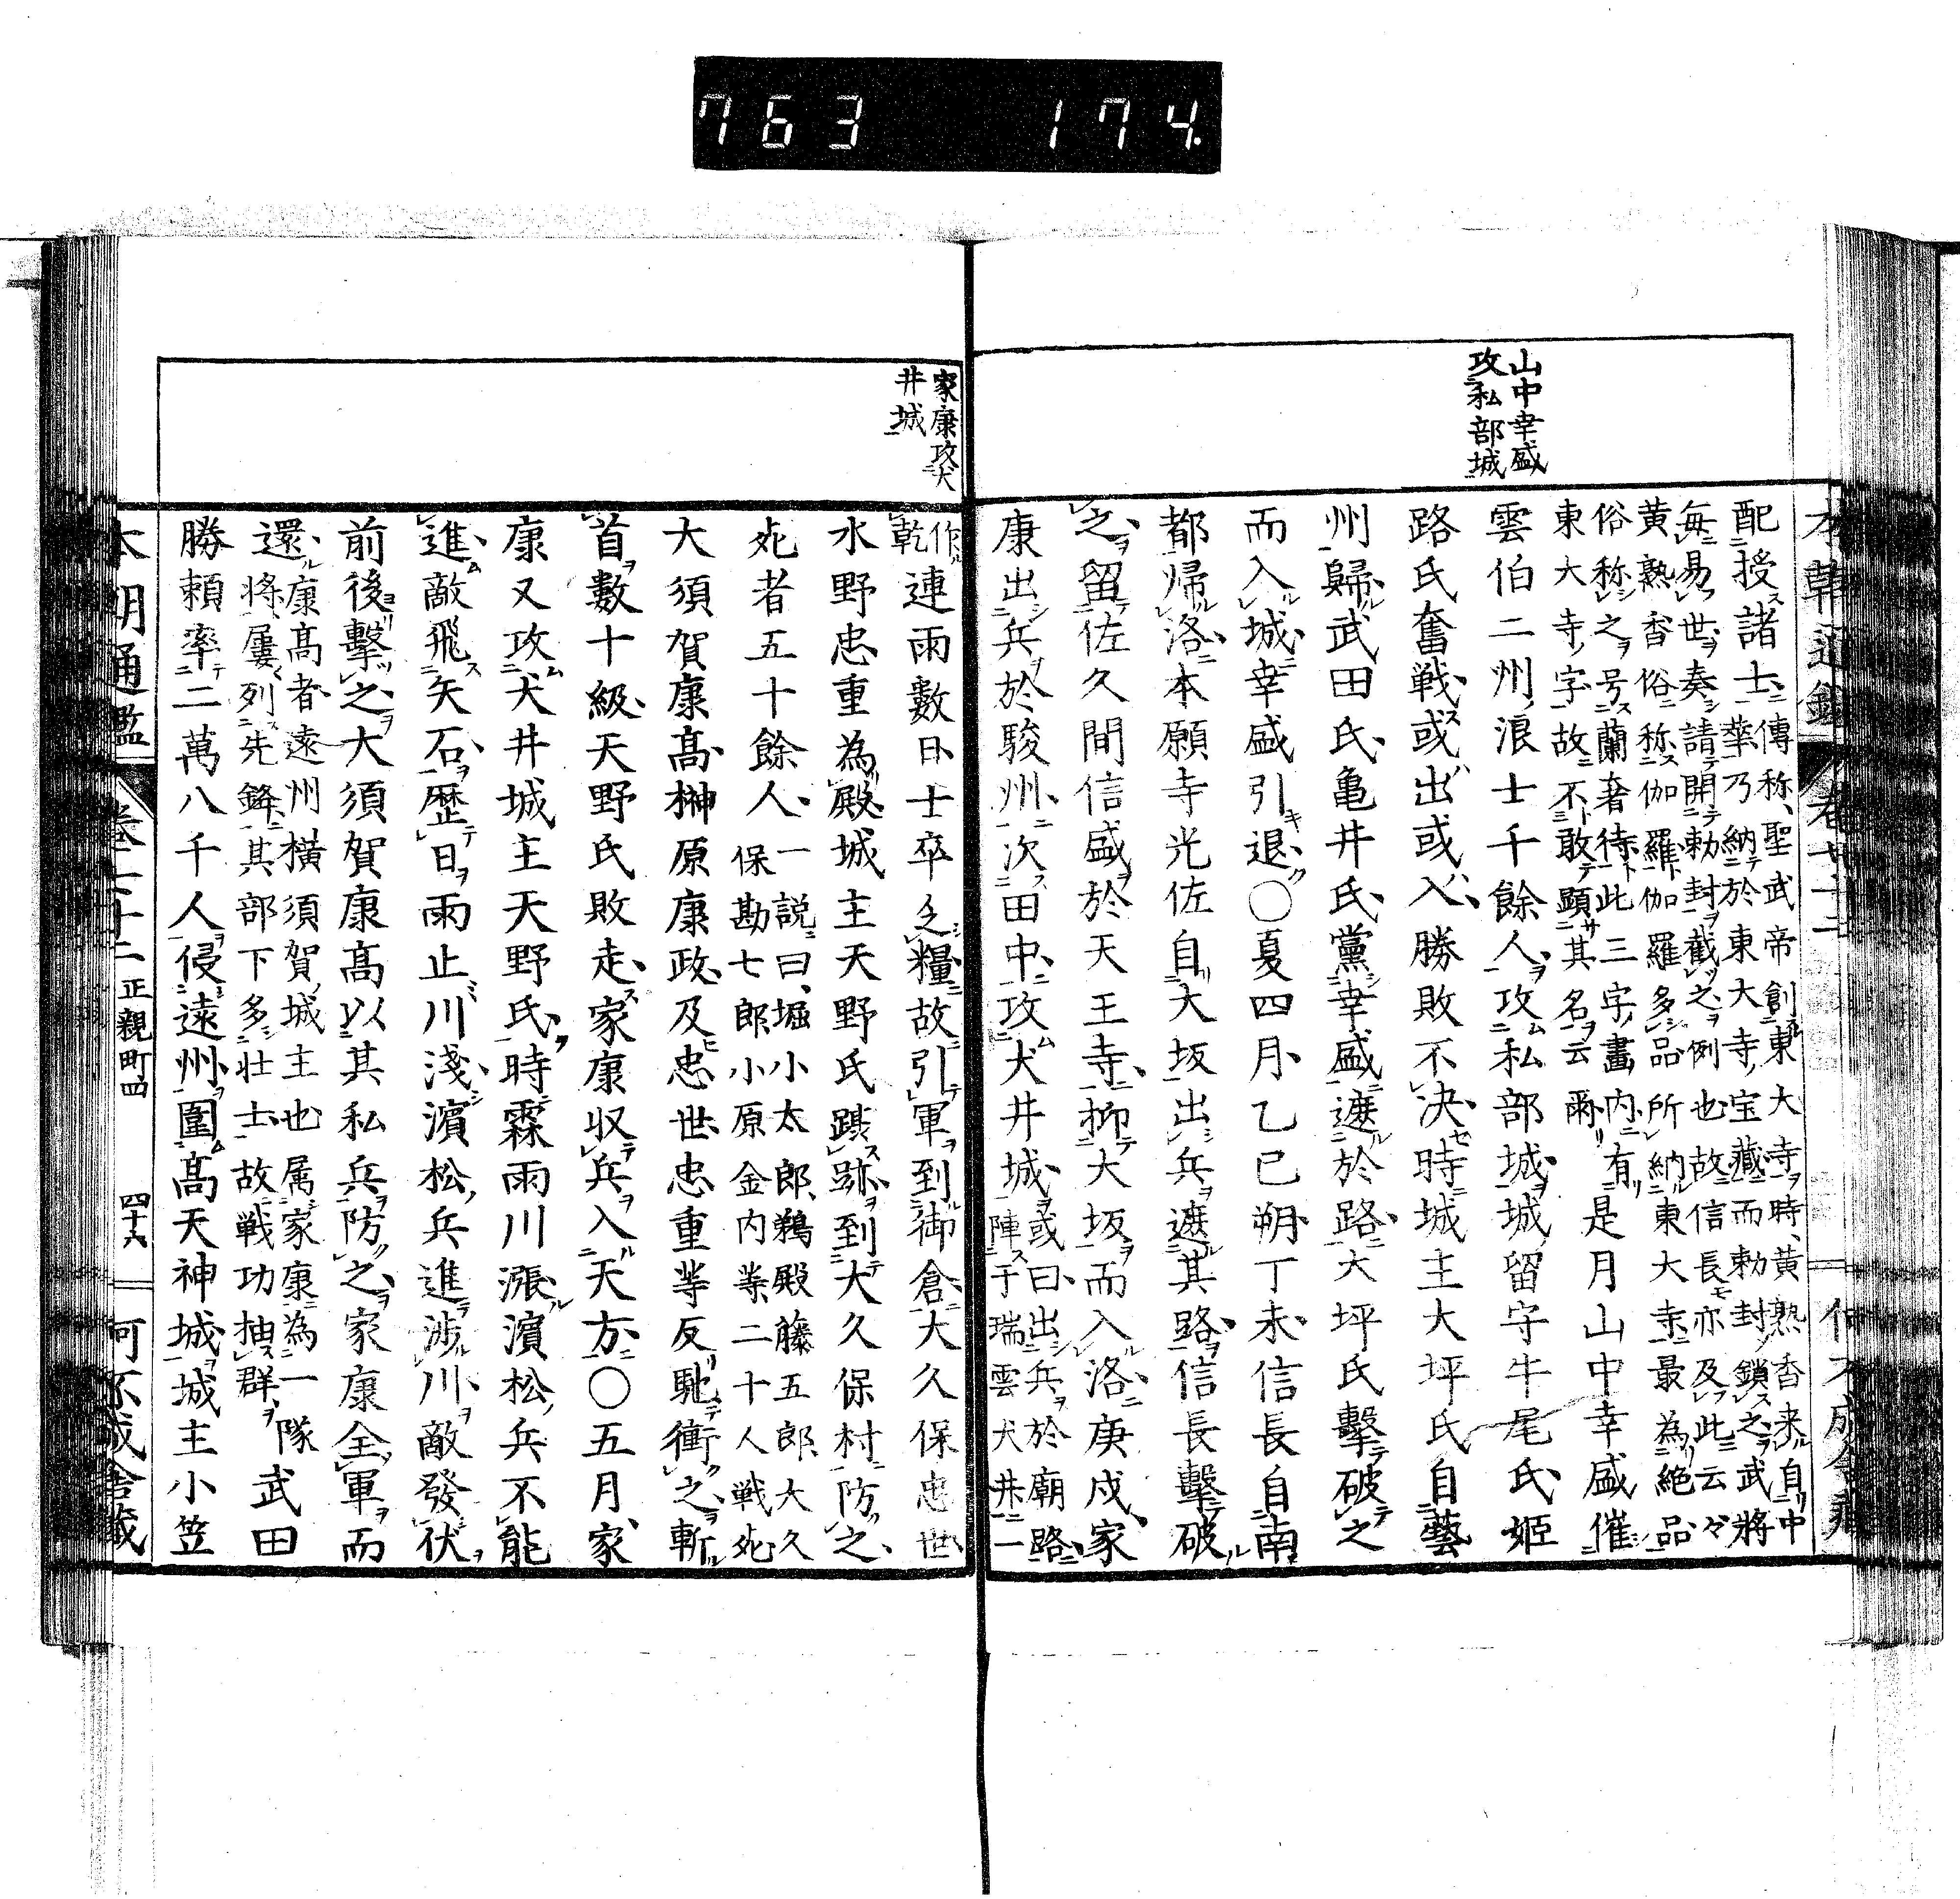 763 174
山中幸盛
攻私部城
配授諸士傳称聖武帝創東大寺時黄熟香来自中
華乃納於東大寺宝蔵而勅封鎖之武將
毎易世奏請開勅封截之例也故信長亦及此云々
黄熟香俗称伽羅伽羅多品所納東大寺最為絶品
俗称之号蘭奢待此三字畫内有
東大寺字故不敢顕其名云爾
是月山中幸盛催
雲伯二州浪士千餘人攻私部城城留守牛尾氏姫
路氏奮戦或出或入勝敗不決時城主大坪氏自藝
州歸武田氏亀井氏黨幸盛遮於路大坪氏擊破之
而入城幸盛引退〇夏四月乙巳朔丁未信長自南
都帰洛本願寺光佐自大坂出兵遮其路信長擊破
之留佐久間信盛於天王寺抑大坂而入洛庚戌家
康出兵於駿州次田中攻犬井城或曰出兵於廟路
陣于瑞雲犬井一
家康攻犬
井城
作
乾連雨數日士卒乏糧故引軍到御倉大久保忠世
水野忠重為殿城主天野氏躡跡到大久保村防之
死者五十餘人一説曰堀小太郎鵜殿藤五郎大久
保勘七郎小原金内等二十人戦死
大須賀康高榊原康政及忠世忠重等反馳衝之斬
首數十級天野氏敗走家康収兵入天方〇五月家
康又攻犬井城主天野氏時霖雨川漲濱松兵不能
進敵飛矢石歴日雨止川淺濱松兵進渉川敵發伏
前後擊之大須賀康高以其私兵防之家康全軍而
還康高者遠州横須賀城主也属家康為一隊
將屢列先鋒其部下多壮士故戦功抽群
武田
勝頼率二萬八千人侵遠州圍高天神城城主小笠
本朝通鑑 卷七十二 正親町四 四十六 可不成舎蔵